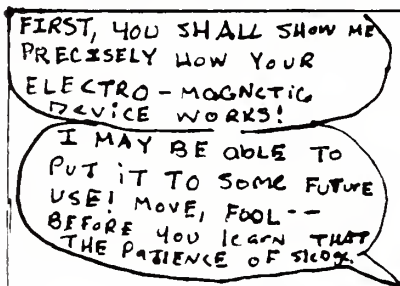 FIRST, YOU SHALL SHOW ME
PRECISELY HOW YOUR
ELECTRO-MAGNETIC
DEVICE WORKS!
I MAY BE ABLE TO
PUT IT TO SOME FUTURE
USE! MOVE, FOOL--
BEFORE YOU LEARN THAT
THE PATIENCE OF